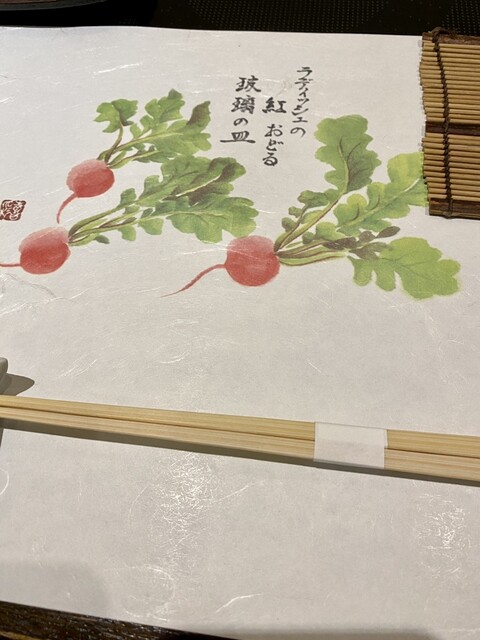 ラディッシュの
紅おどる
玻璃の皿